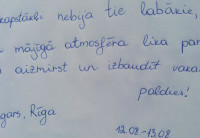 apstākļi nebija tie labākie,
mājīgā atmosfēra lika
aizmirst un izbaudīt
paldies!
gars, Rīga
12.08 - 13.08